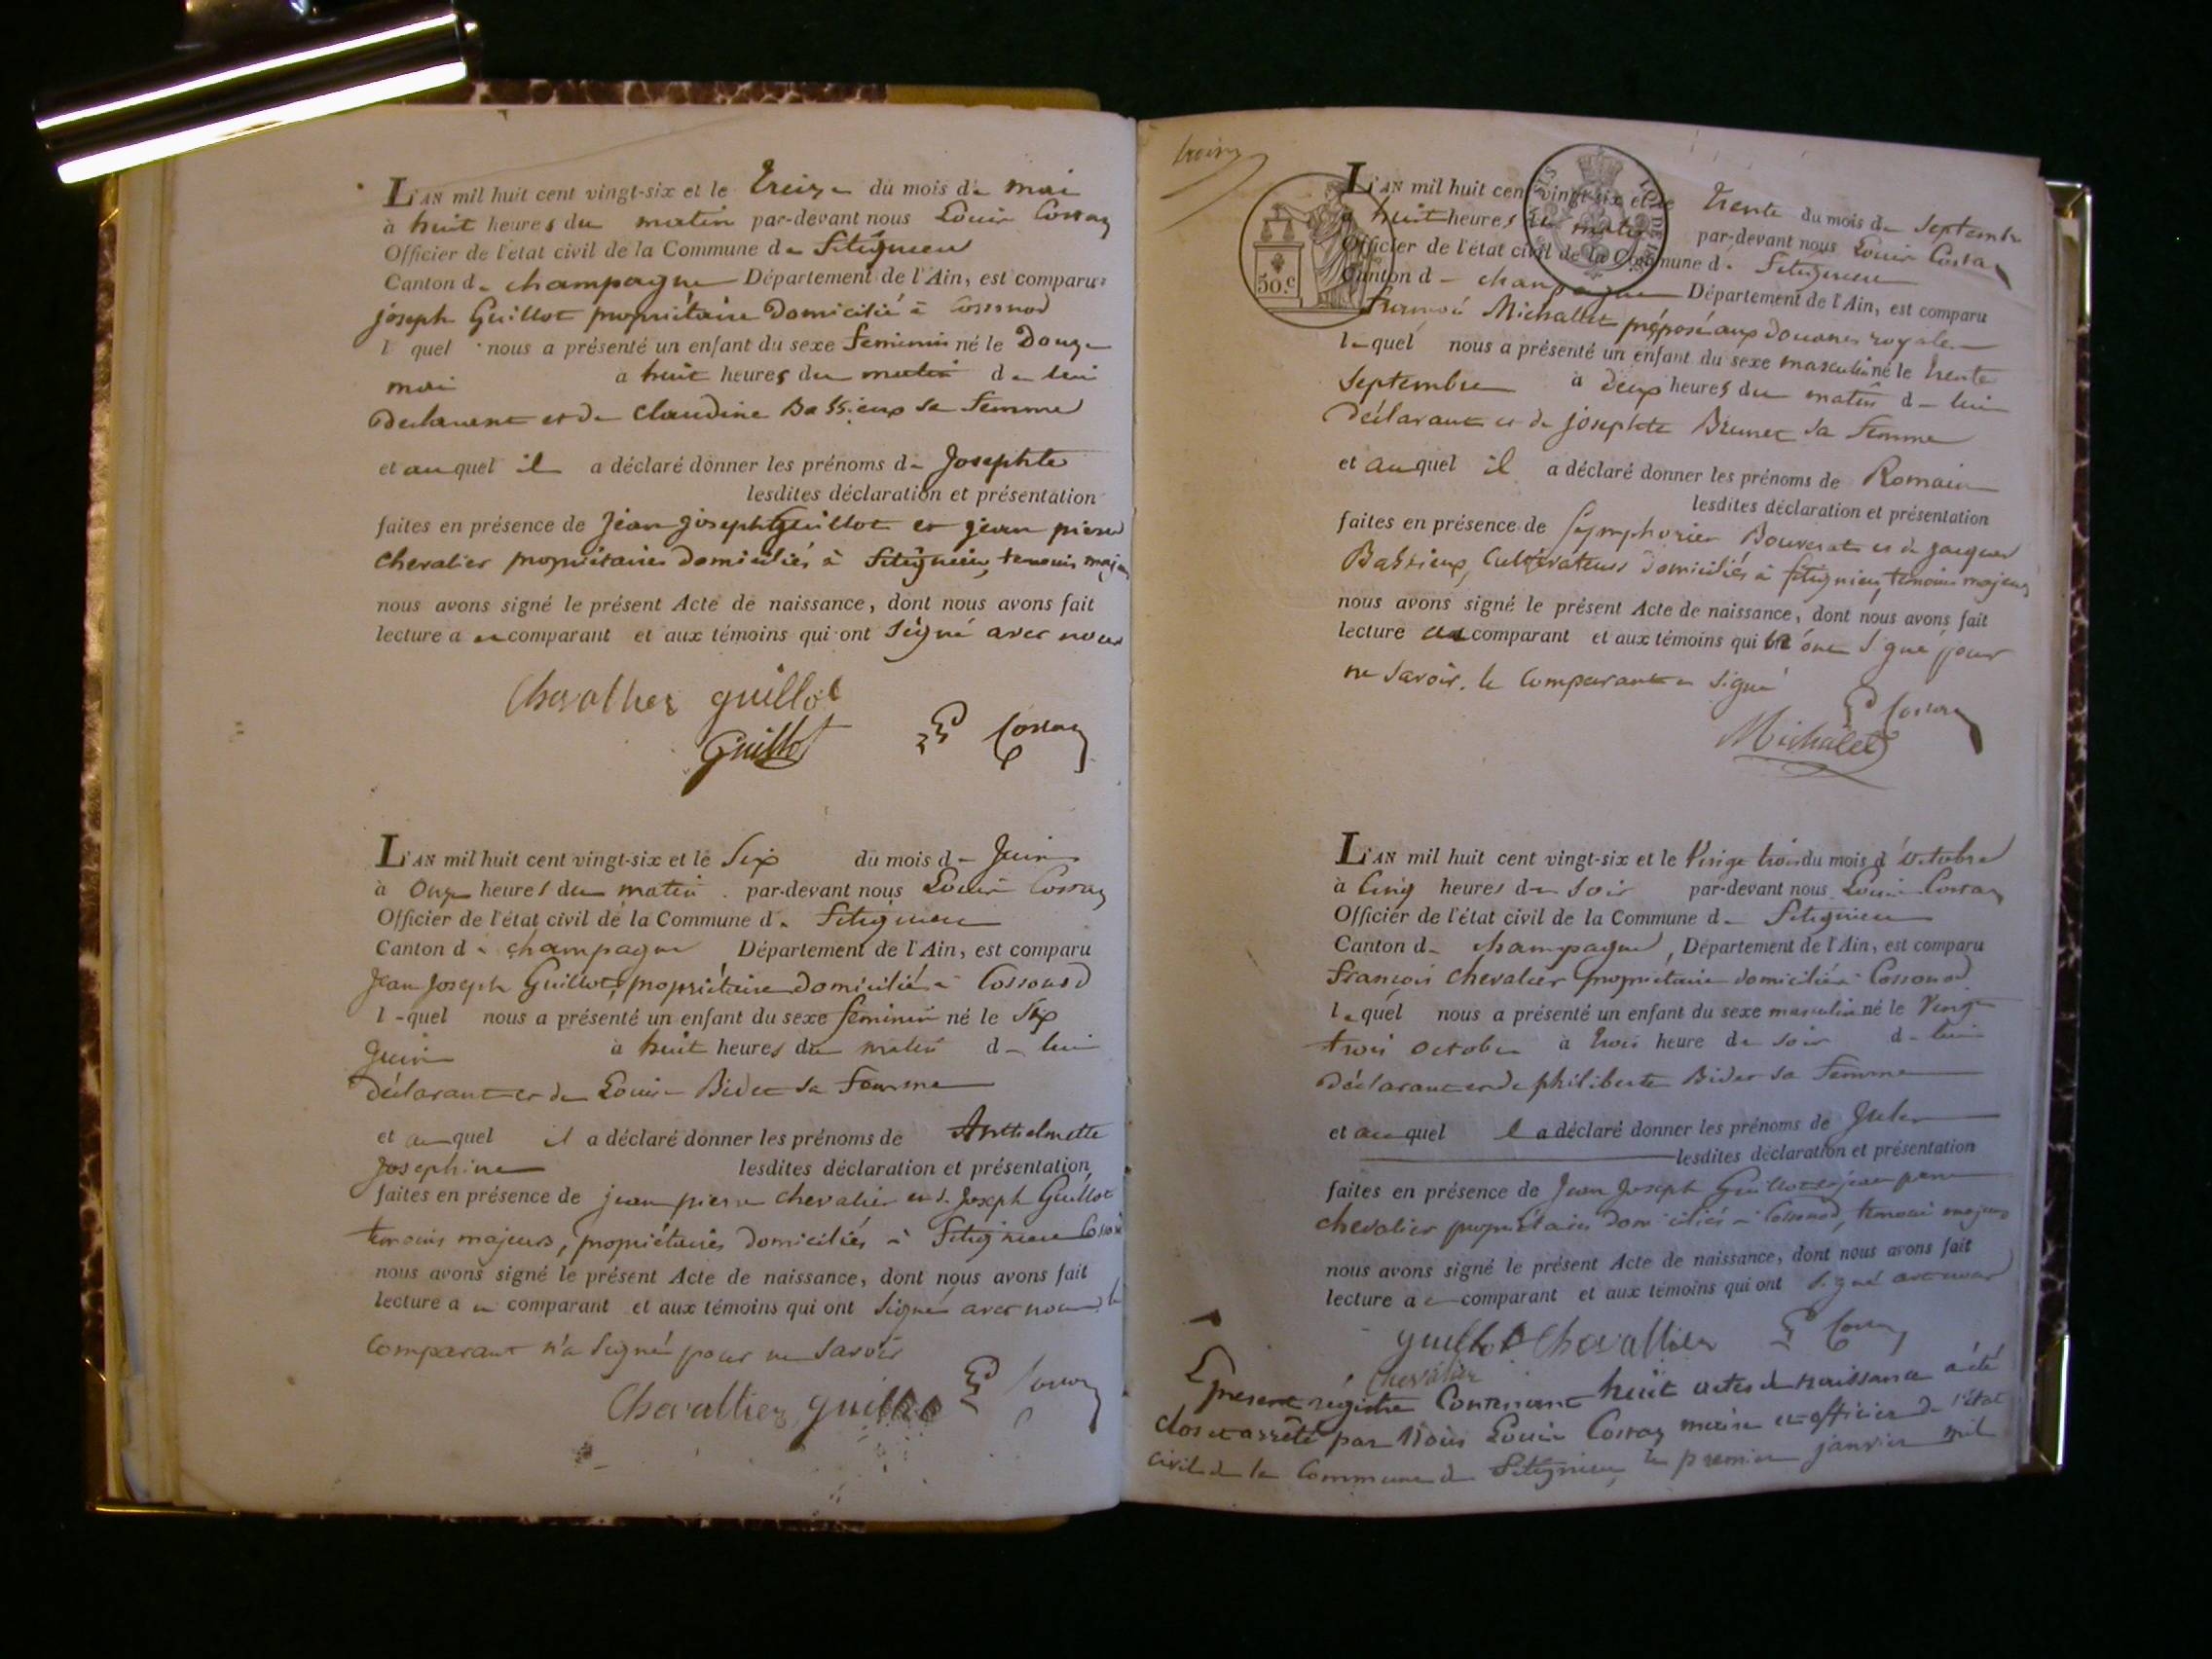 L'AN mil huit cent vingt-six et le Treize du mois de mai
à huit heures du matin par-devant nous Louis Cossaz
Officier de l'état civil de la Commune de Fitignieu
Canton de champagne Département de l'Ain, est comparu
joseph Guillot propriétaire Domicilié à Cossonod
l quel nous a présenté un enfant du sexe feminin né le Douze
mai à huit heures du matin de lui
Déclarant et de Claudine Bassieux sa femme
et auquel il a déclaré donner les prénoms de Josephte
lesdites déclaration et présentation
faites en présence de Jean joseph Guillot et jean pierre
chevalier propriétaires domiciliés à Fitignieu, temoins majeurs
nous avons signé le présent Acte de naissance, dont nous avons fait
lecture au comparant et aux témoins qui ont signé avec nous
Chevallier guillot
Guillot Cossaz
L'AN mil huit cent vingt-six et le Six du mois de Juin
à Onze heures du matin par-devant nous Louis Cossaz
Officier de l'état civil de la Commune de Fitignieu
Canton de champagne Département de l'Ain, est comparu
Jean Joseph Guillot, propriétaire domicilié à Cossonod
lequel nous a présenté un enfant du sexe feminin né le Six
Juin à huit heures du matin de lui
déclarant et de Louise Bidet sa femme
et auquel il a déclaré donner les prénoms de Anthelmette
Josephine lesdites déclaration et présentation
faites en présence de jean pierre chevalier et de Joseph Guillot
temoins majeurs, propriétaires domiciliés à Fitignieu
nous avons signé le présent Acte de naissance, dont nous avons fait
lecture au comparant et aux témoins qui ont signé avec nous le
comparant n'a signé pour ne savoir
Chevallier guillot Cossaz
L'AN mil huit cent vingt-six et le trente du mois de Septembre
à huit heures du matin par-devant nous Louis Cossaz
Officier de l'état civil de la Commune de Fitignieu
50.c
Canton de champagne Département de l'Ain, est comparu
François Michallet préposé aux douanes royales
lequel nous a présenté un enfant du sexe masculin né le trente
Septembre à deux heures du matin de lui
Déclarant et de josephte Brunet sa femme
et auquel il a déclaré donner les prénoms de Romain
lesdites déclaration et présentation
faites en présence de Symphorien Bouverat et de jacques
Bassieux, Cultivateurs domiciliés à fitignieu, temoins majeurs
nous avons signé le présent Acte de naissance, dont nous avons fait
lecture au comparant et aux témoins qui n'ont signé pour
ne savoir. le comparant a signé
Cossaz
Michalet
L'AN mil huit cent vingt-six et le Vingt trois du mois d'Octobre
à Cinq heures du soir par-devant nous Louis Cossaz
Officier de l'état civil de la Commune de Fitignieu
Canton de champagne, Département de l'Ain, est comparu
françois chevalier propriétaire domicilié à Cossonod
lequel nous a présenté un enfant du sexe masculin né le Vingt
trois octobre à trois heure du soir de lui
déclarant et de philiberte Bidet sa femme
et auquel il a déclaré donner les prénoms de Jules
lesdites déclaration et présentation
faites en présence de Jean Joseph Guillot et jean pierre
chevalier propriétaires domiciliés à Cossonod, temoins majeurs
nous avons signé le présent Acte de naissance, dont nous avons fait
lecture au comparant et aux témoins qui ont signé avec nous
guillot Chevallier Cossaz
Chevalier
Le present régistre Contenant huit actes de naissance a été
clos et arrêté par Nous Louis Cossaz maire et officier de l'état
civil de la Commune de Fitignieu le premier janvier mil